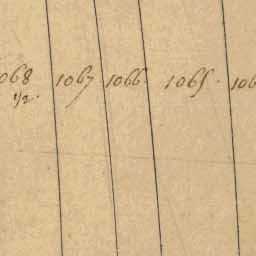 068 1067 1066 1065. 106
1/2.